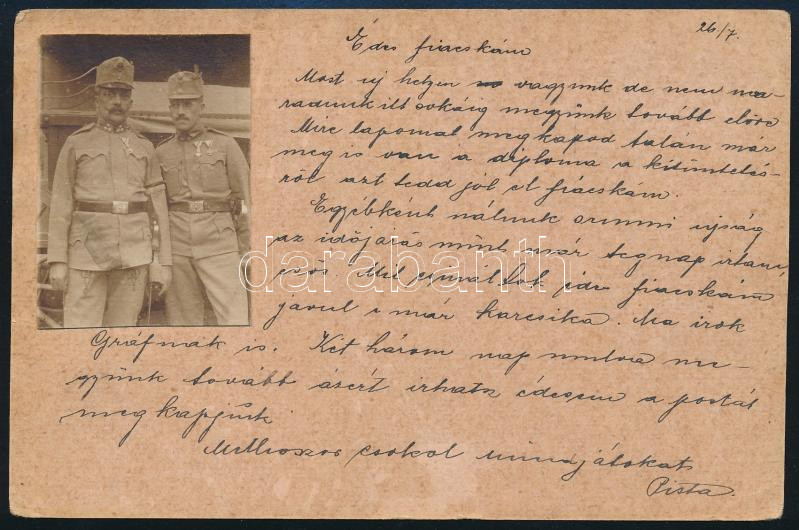 26/7.
Édes fiacskám
Most uj helyen vagyunk de nem ma-
radunk itt sokáig megyünk tovább előre
Mire lapomat megkapod talán már
meg is van a diploma a kitüntetés-
ről azt tedd jól el fiacskám.
Egyébként nálunk semmi ujság
az időjárás mint már tegnap irtam,
esős. Mit csináltok édes fiacskám
javul e már Karcsika. Ma irok
Gráfnak is. Két három nap mulva me-
gyünk tovább ázért irhatsz édesem a postát
megkapjuk.
Milliószor csokol mindjátokat
Pista.
darabanth